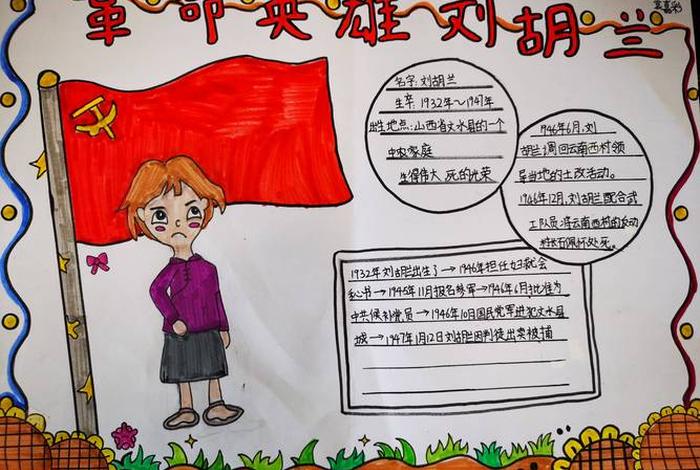 革命英雄刘胡兰
名字:刘胡兰
生卒:1932年~1947年
出生地点:山西省文水县的一个
中农家庭
生得伟大 死的光荣
1946年6月,刘
胡兰调回云南西村领
导当地的土改活动。
1946年12月,刘胡兰配合武
工队员将云南西村的反动
村长石佩怀处死。
1932年刘胡兰出生了→1946年担任妇救会
秘书→1945年11月报名参军→1946年6月批准为
中共候补党员→1946年10月国民党军进犯文水县
城→1947年1月12日刘胡兰因叛徒出卖被捕